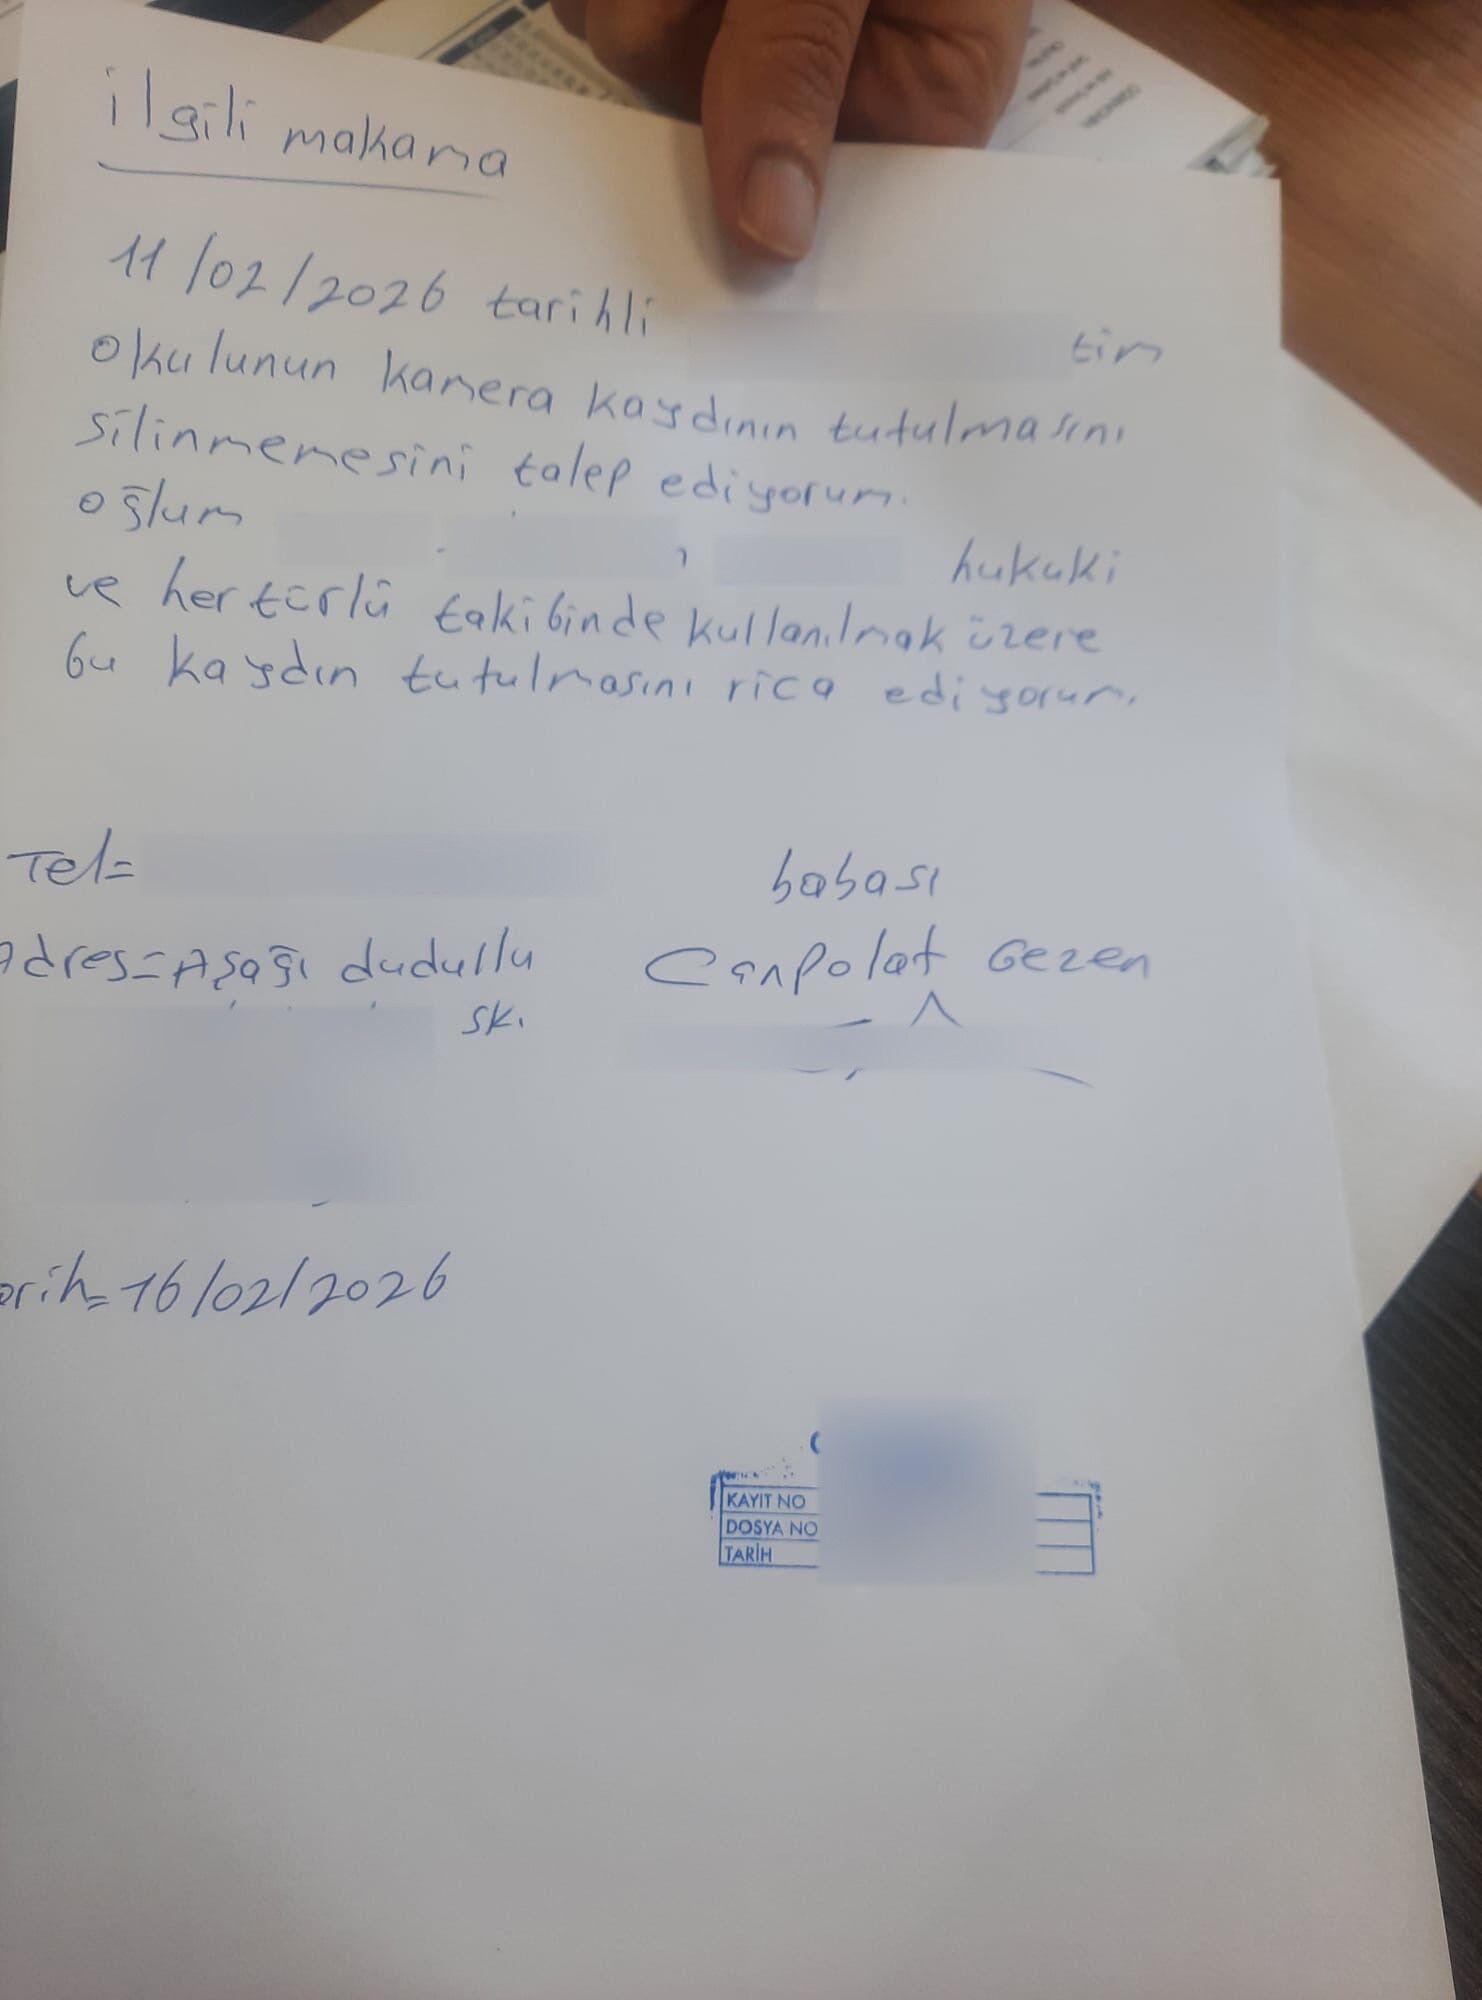 ilgili makama
11/02/2026 tarihli tim
okulunun kamera kaydının tutulmasını
silinmemesini talep ediyorum.
oğlum , hukuki
ve her türlü takibinde kullanılmak üzere
bu kaydın tutulmasını rica ediyorum.
Tel=
babası
Adres=Aşağı dudullu
Canpolat Gezen
sk.
arih=16/02/2026
KAYIT NO
DOSYA NO
TARİH